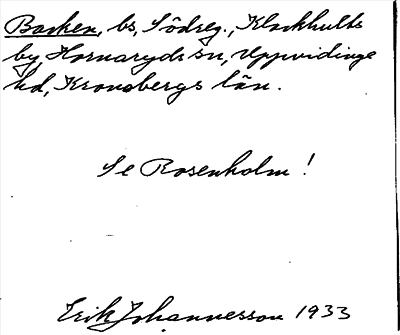 Backen, bs, Södreg., Klockhults
by, Hornaryds sn, Uppvidinge
hd, Kronobergs län.
Se Rosenholm!
Erik Johannesson 1933